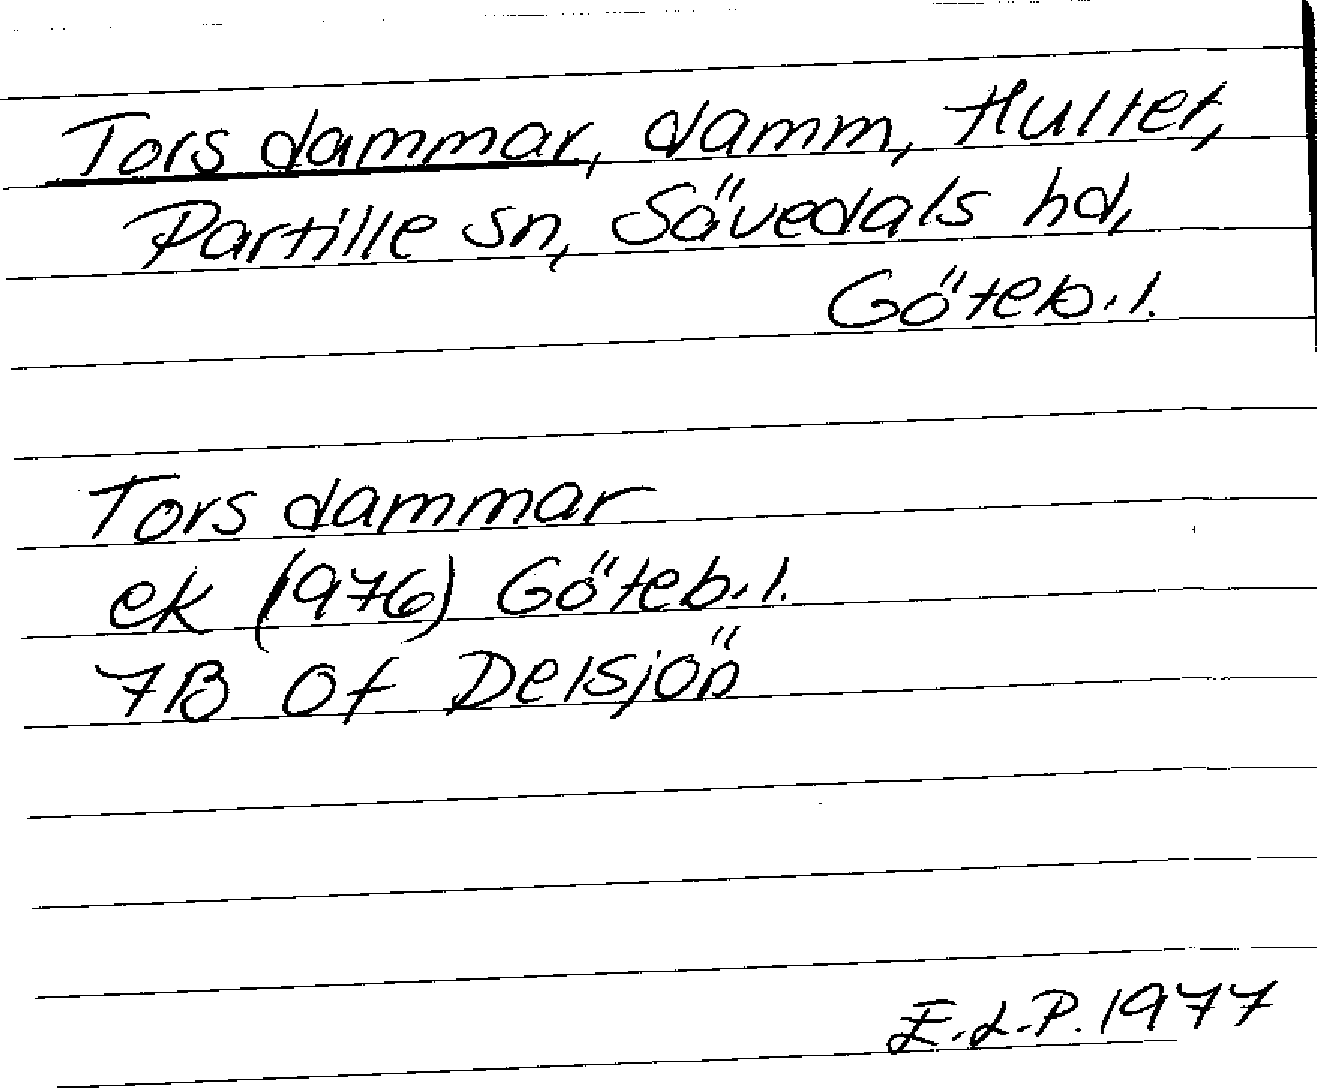 Tors dammar, damm, Hultet,
Partille sn, Sävedals hd,
Göteb.l.
Tors dammar
ek (1976) Göteb.l.
7B 0f Delsjön
E.L.P. 1977